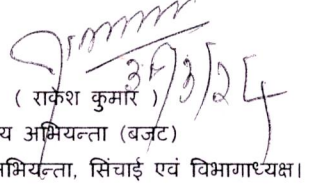 ( राकेश कुमार )
य अभियन्ता (बजट)
भियन्ता, सिंचाई एवं विभागाध्यक्ष।